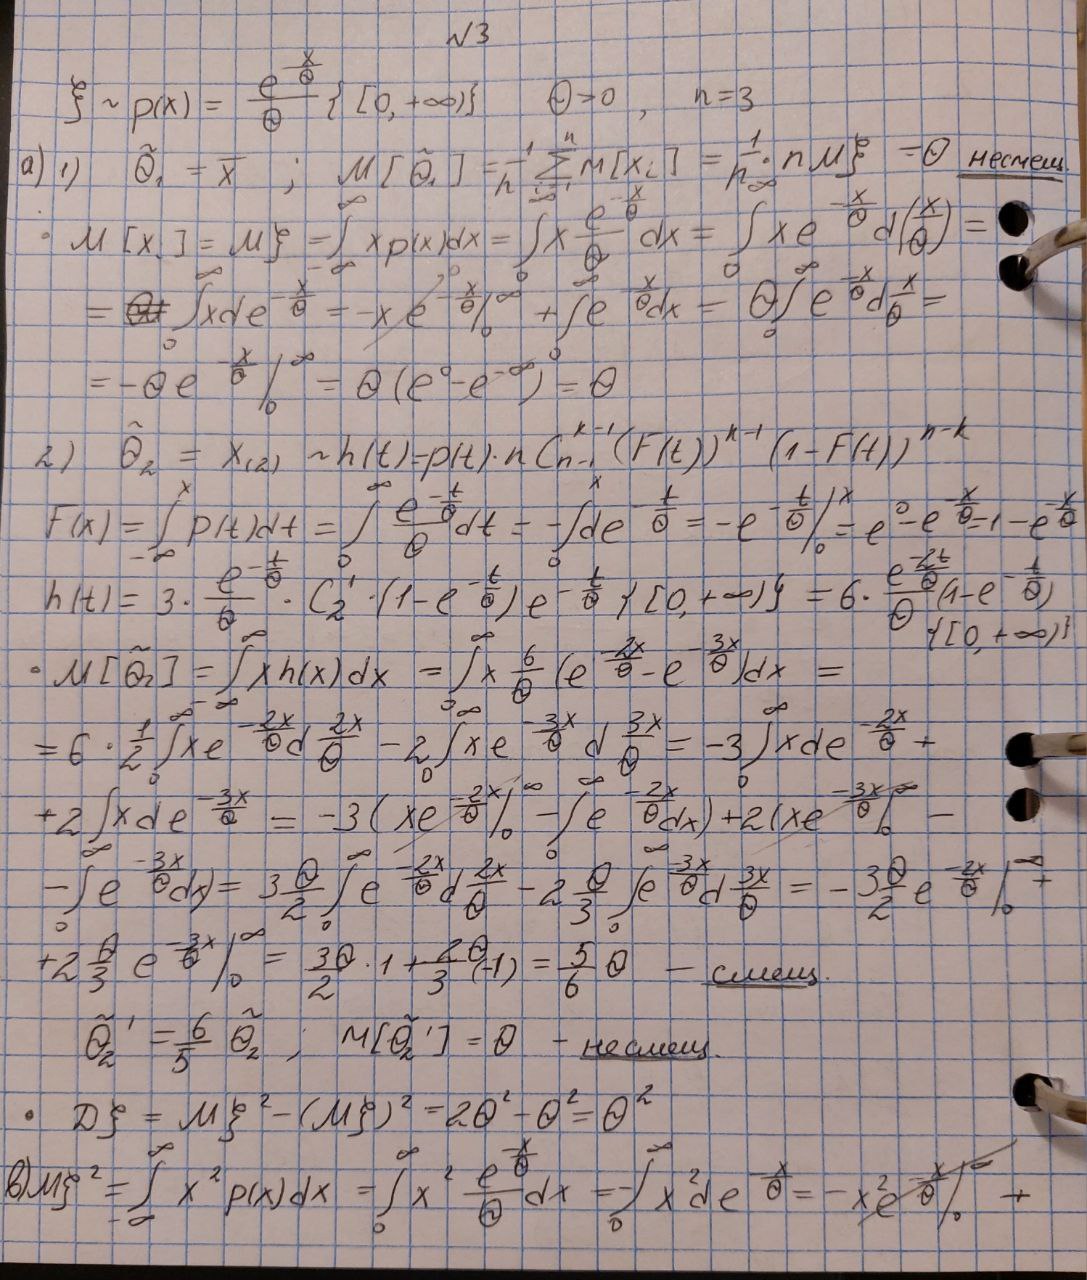 №3
ξ ~ p(x) = e^{-x/θ}/θ {[0,+∞)}   θ>0 ,   n=3
а) 1)   θ̃₁ = x̄   ;   M[θ̃₁] = 1/n ∑_{i=1}^{n} M[xᵢ] = 1/n · n Mξ = θ несмещ.
· M[xᵢ] = Mξ = ∫_{-∞}^{∞} x p(x)dx = ∫_0^∞ x e^{-x/θ}/θ dx = ∫_0^∞ x e^{-x/θ} d(x/θ) =
= ∫_0^∞ x d e^{-x/θ} = -x e^{-x/θ} |_0^∞ + ∫_0^∞ e^{-x/θ} dx = θ ∫_0^∞ e^{-x/θ} d x/θ =
= -θ e^{-x/θ} |_0^∞ = θ (e⁰ - e^{-∞}) = θ
2)   θ̃₂ = x₍₂₎ ~ h(t) = p(t)·n C_{n-1}^{k-1} (F(t))^{k-1} (1-F(t))^{n-k}
F(x) = ∫_{-∞}^{x} p(t)dt = ∫_0^∞ e^{-t/θ}/θ dt = -∫_0^x d e^{-t/θ} = -e^{-t/θ} |_0^x = e⁰ - e^{-x/θ} = 1 - e^{-x/θ}
h(t) = 3 · e^{-t/θ}/θ · C_2^1 · (1-e^{-t/θ}) e^{-t/θ} {[0,+∞)} = 6 · e^{-2t/θ}/θ (1-e^{-t/θ})
{[0,+∞)}
· M[θ̃₂] = ∫_{-∞}^{∞} x h(x) dx = ∫_0^∞ x 6/θ (e^{-2x/θ} - e^{-3x/θ})dx =
= 6 · 1/2 ∫_0^∞ x e^{-2x/θ} d 2x/θ - 2 ∫_0^∞ x e^{-3x/θ} d 3x/θ = -3 ∫_0^∞ x d e^{-2x/θ} +
+2 ∫ x d e^{-3x/θ} = -3 ( x e^{-2x/θ} |_0^∞ - ∫_0^∞ e^{-2x/θ} dx) + 2 (x e^{-3x/θ} |_0^∞ -
- ∫_0^∞ e^{-3x/θ} dx) = 3 θ/2 ∫_0^∞ e^{-2x/θ} d 2x/θ - 2 θ/3 ∫_0^∞ e^{-3x/θ} d 3x/θ = - 3θ/2 e^{-2x/θ} |_0^∞ +
+2 θ/3 e^{-3x/θ} |_0^∞ = 3θ/2 · 1 + 2θ/3 (-1) = 5/6 θ - смещ.
θ̃₂' = 6/5 θ̃₂ ;   M[θ̃₂'] = θ - несмещ.
· Dξ = Mξ² - (Mξ)² = 2θ² - θ² = θ²
в) Mξ² = ∫_{-∞}^{∞} x² p(x) dx = ∫_0^∞ x² e^{-x/θ}/θ dx = -∫_0^∞ x² d e^{-x/θ} = -x² e^{-x/θ} |_0^∞ +